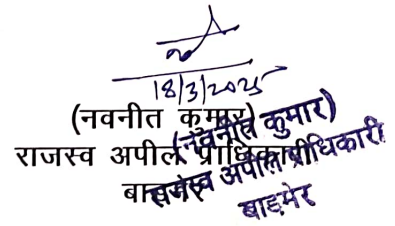 18/3/2025
(नवनीत कुमार)
राजस्व अपील प्राधिकारी
बाड़मेर
(नवनीत कुमार)
राजस्व अपील प्राधिकारी
बाड़मेर